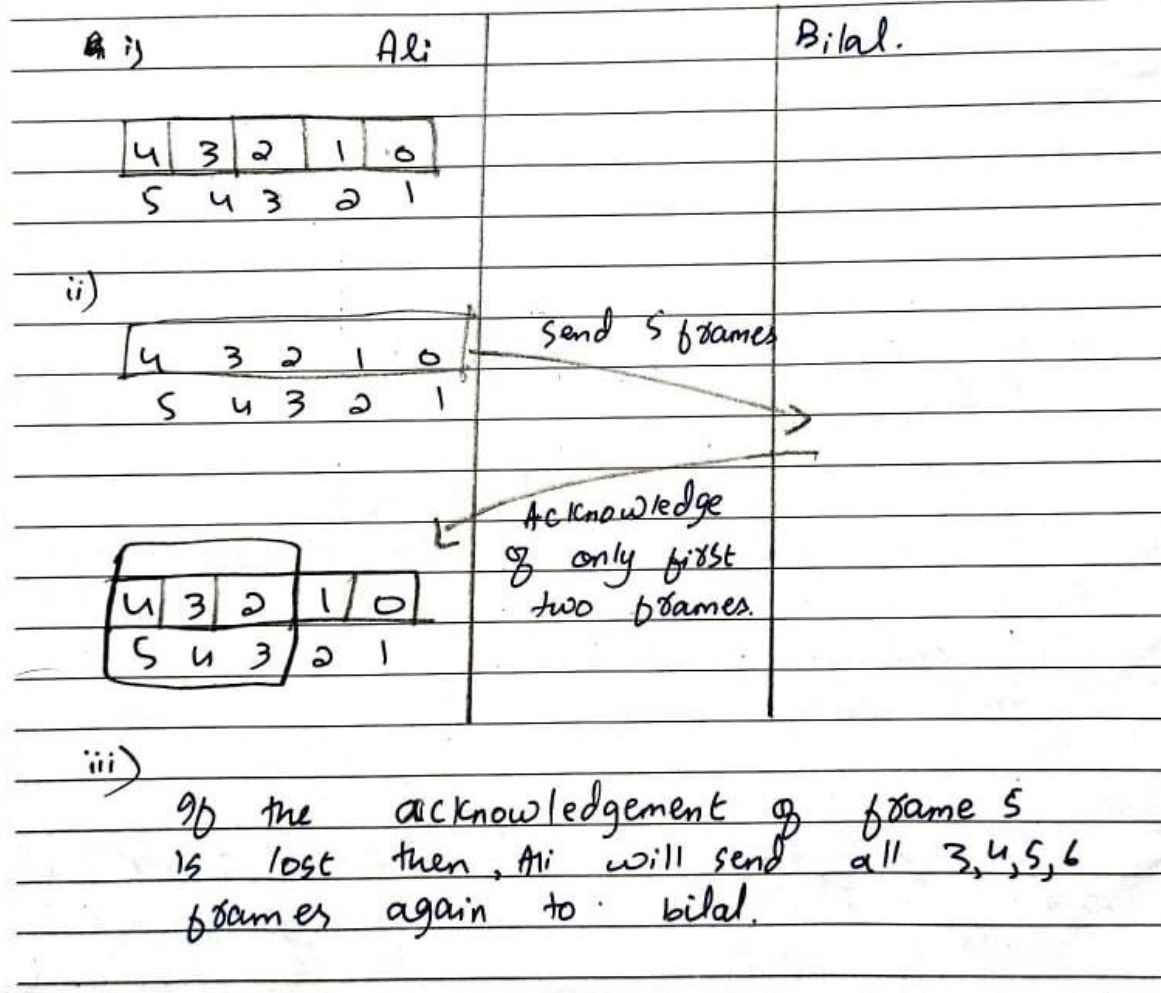 i) Ali Bilal.
4 3 2 1 0
5 4 3 2 1
ii)
4 3 2 1 0
5 4 3 2 1
Send 5 frames
Acknowledge
of only first
two frames.
4 3 2 1 0
5 4 3 2 1
iii)
If the acknowledgement of frame 5
is lost then, Ali will send all 3,4,5,6
frames again to bilal.